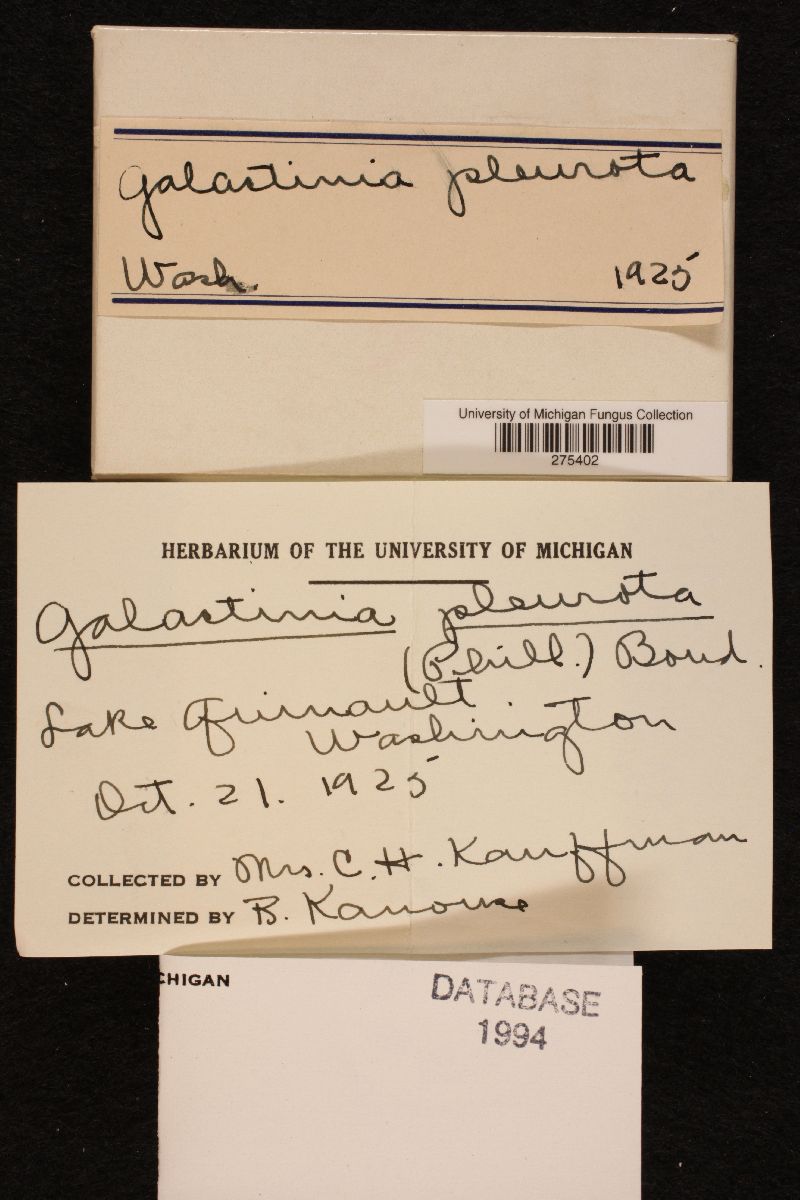 Galactinia pleurota
Wash. 1925
University of Michigan Fungus Collection
275402
HERBARIUM OF THE UNIVERSITY OF MICHIGAN
Galactinia pleurota
(Phill.) Boud.
Lake Quinault
Washington
Oct. 21. 1925
COLLECTED BY Mrs. C. H. Kauffman
DETERMINED BY B. Kanouse
CHIGAN
DATABASE
1994